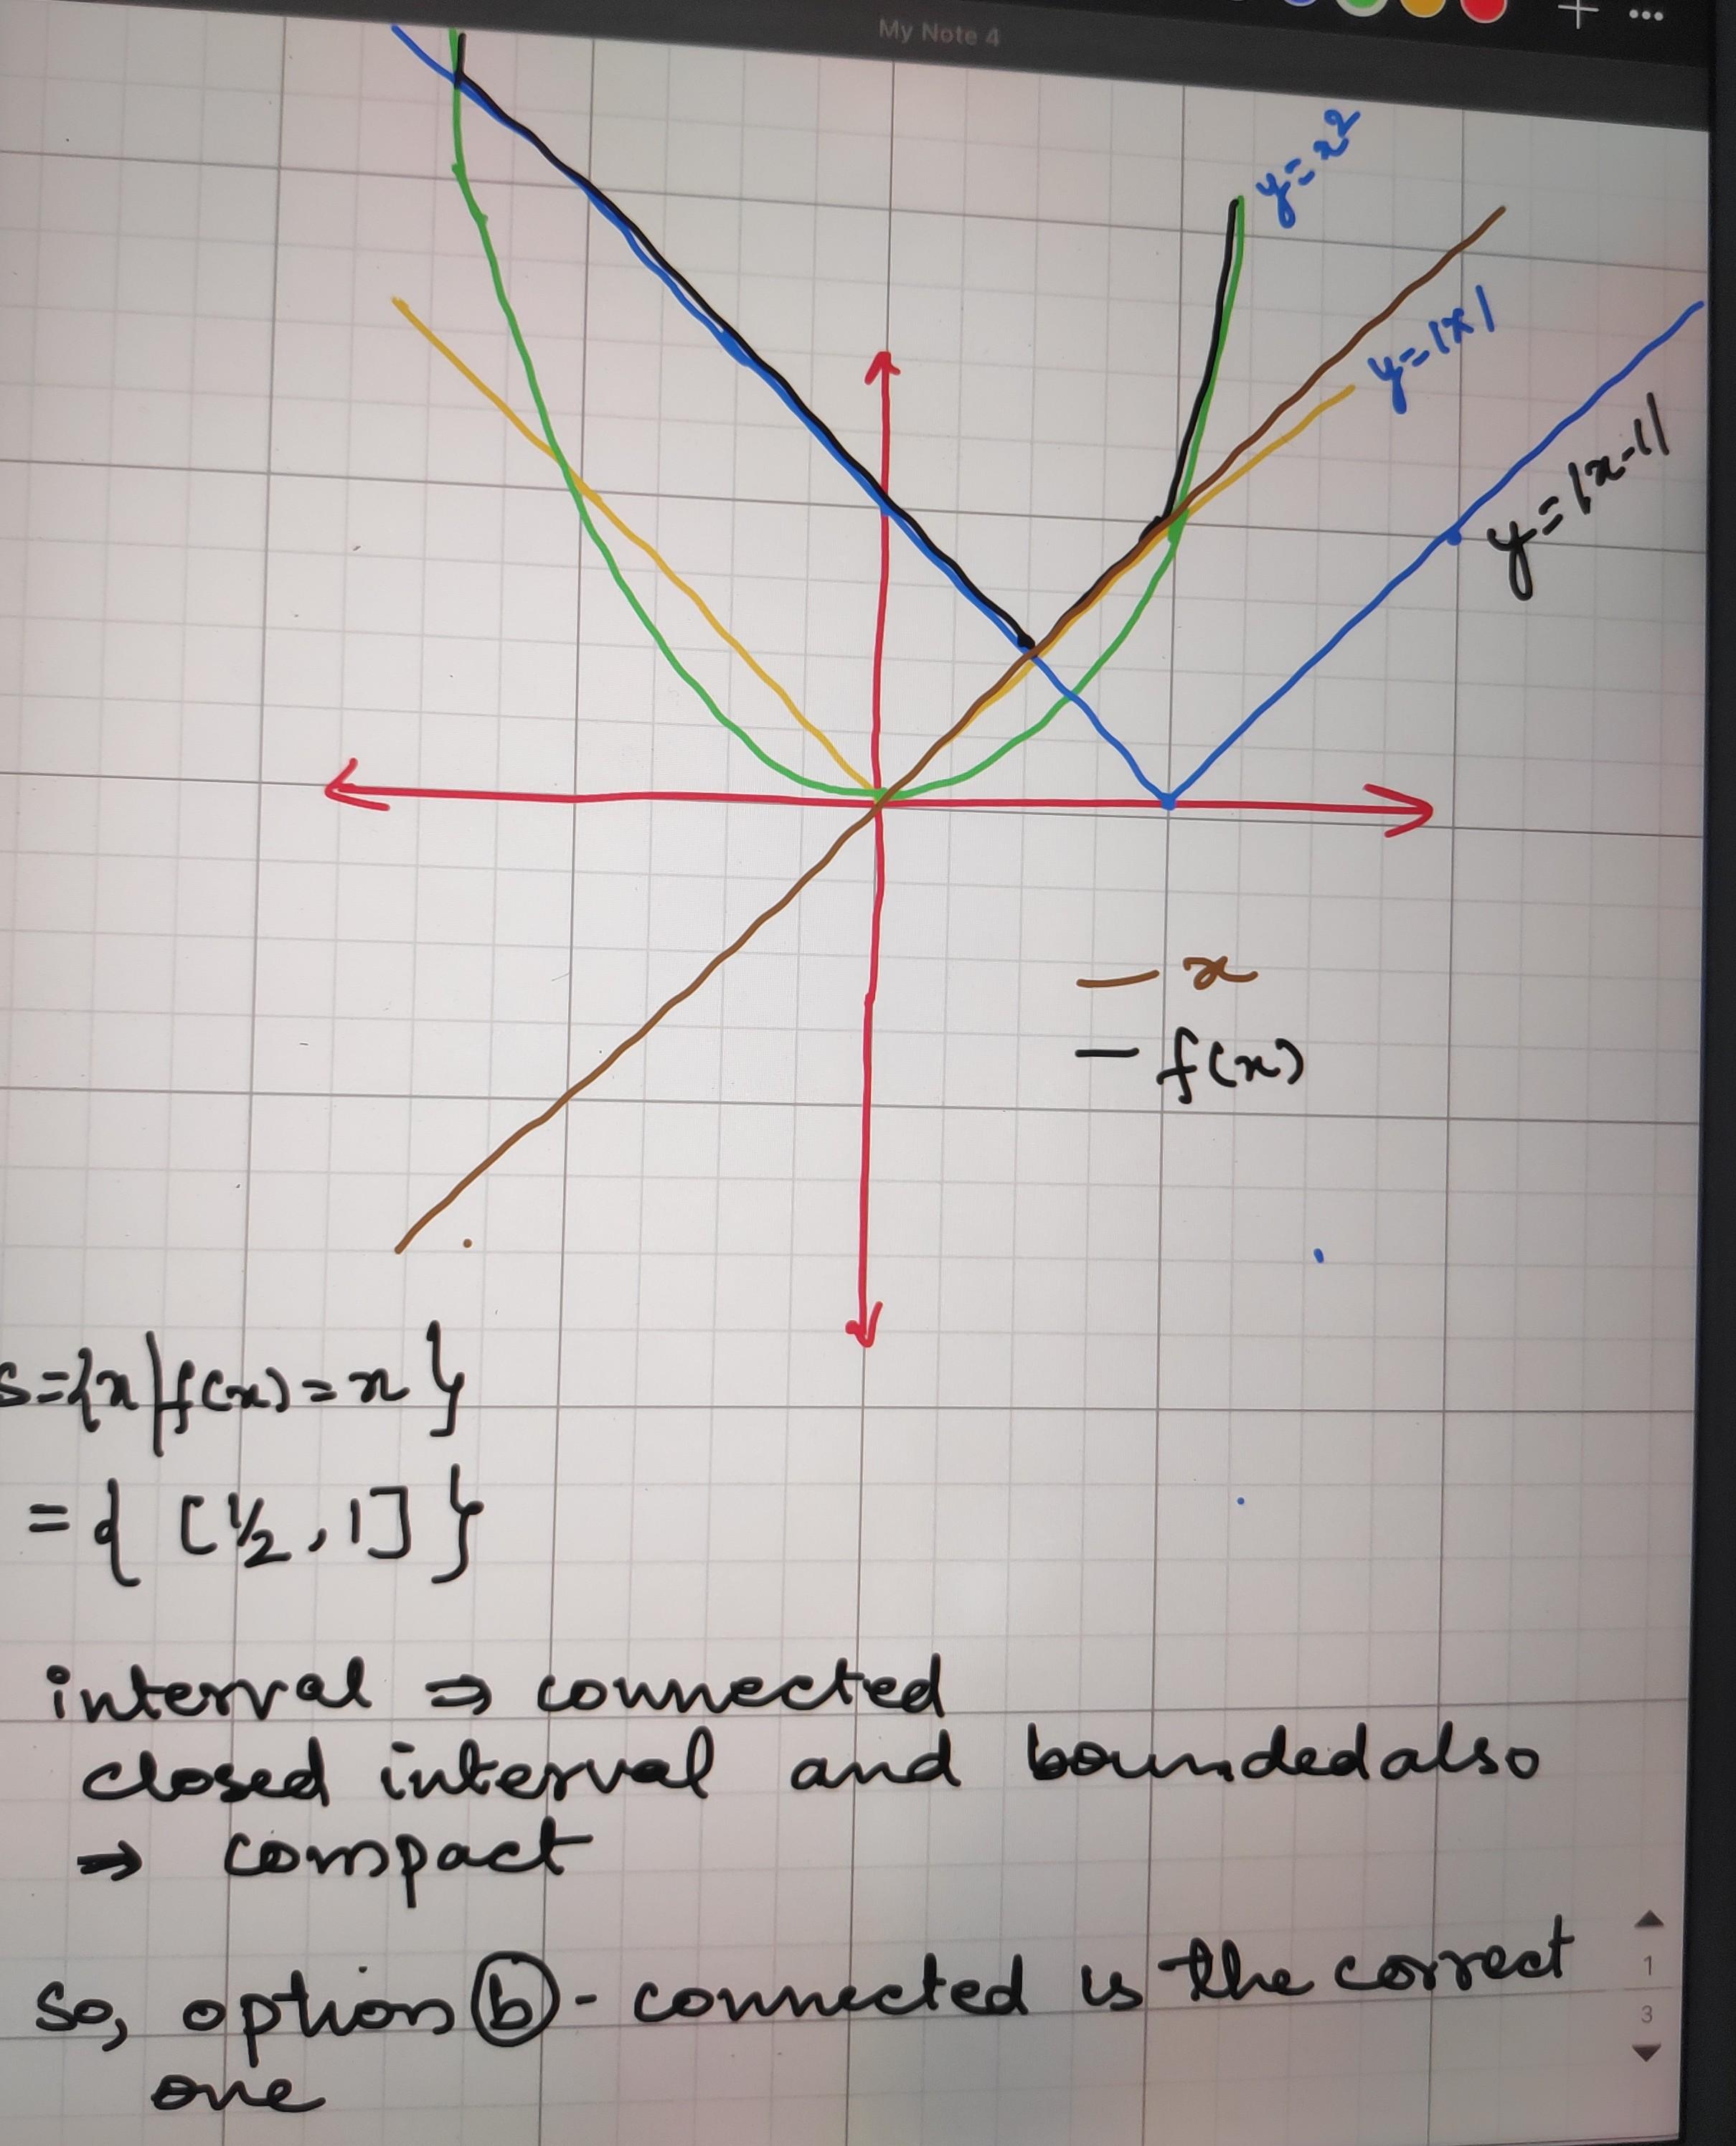 My Note 4
y=x²
y=|x|
y=|x-1|
— x
— f(x)
S={x|f(x)=x}
={ [1/2, 1] }
interval ⇒ connected
closed interval and bounded also
⇒ compact
So, option ⓑ - connected is the correct
one
1
3